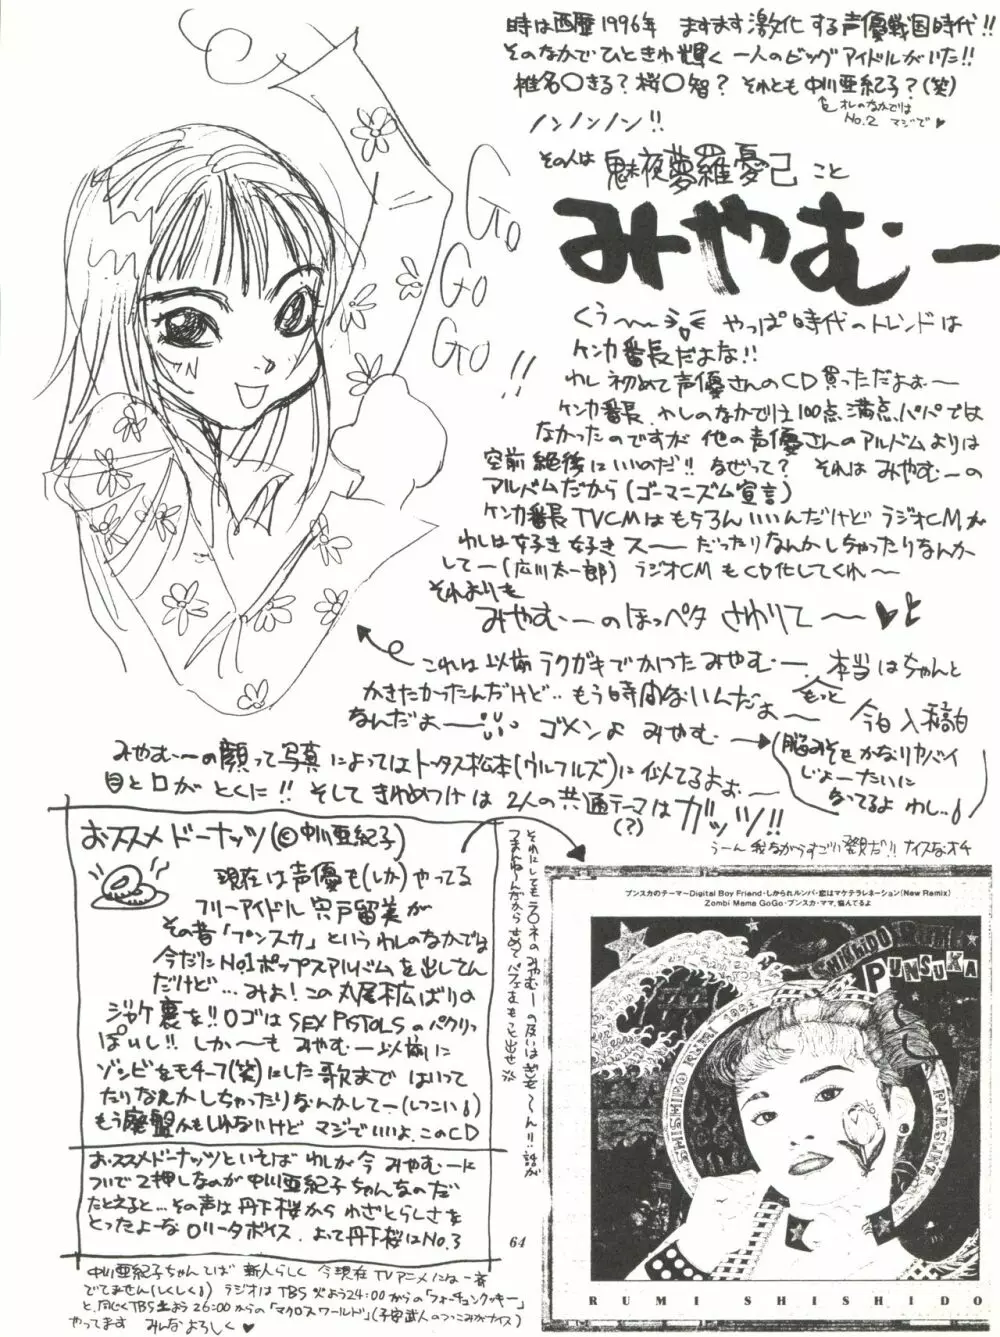 時は西歴1996年 ますます激化する声優戦国時代!!
そのなかでひときわ輝く一人のビッグアイドルがいた!!
椎名〇きる? 桜〇智? それとも中川亜紀子?(笑)
オレのなかでは
No.2 マジで♥
ノンノンノン!!
その人は 魅夜夢羅憂己 こと
みやむー
Go
Go
Go!!
くぅ〜 やっぱ時代のトレンドは
ケンカ番長だよな!!
わし初めて声優さんのCD買っただよぉ〜
ケンカ番長、わしのなかでは100点満点パパでは
なかったのですが他の声優さんのアルバムよりは
空前絶後にいいのだ!! なぜって? それはみやむーの
アルバムだから(ゴーマニズム宣言)
ケンカ番長TVCMはもちろんいいんだけどラジオCMが
わしは好き好きス〜 だったりなんかしちゃったりなんか
して〜(広川太一郎) ラジオCMもCD化してくれ〜
それよりも
みやむーのほっペタ さわりて〜♥
これは以前ラクガキでかいたみやむー、本当はちゃんと
かきたかったんだけど‥もう時間ないんだよ〜 もっと
なんだよー ゴメンよ みやむー
今日入稿日
脳みそもかなりヤバイ
じょーたいに
なってるよ わし‥
みやむーの顔って写真によってはトータス松本(ウルフルズ)に似てるよぉ
目と口がとくに!! そしてきわめつけは2人の共通テーマはガッツ!!
(?)
うーん我ながらすごい発見だ!! ナイスなオチ
おススメドーナッツ(©中川亜紀子)
現在は声優も(しか)やってる
フリーアイドル宍戸留美が
その昔「プンスカ」というわしのなかでは
今だにNo1ポップスアルバムを出してん
だけど…みよ!この丸尾末広ばりの
ジャケ裏を!! ロゴはSEX PISTOLSのパクリっ
ぽいし!! しか〜もみやむー以前に
ゾンビをモチーフ(笑)にした歌まではいって
たりなんかしちゃったりなんかしてー(しつこい)
もう廃盤かもしれないけどマジでいいよ、このCD
おススメドーナッツといえばわしが今みやむーに
ついで2押しなのが中川亜紀子ちゃんなのだ
たとえると…その声は丹下桜からわざとらしさを
とったよーなロリータボイス、よって丹下桜はNo.3
中川亜紀子ちゃんてば新人らしく今現在TVアニメには一斉
でてません(しくしく) ラジオはTBS火よう24:00からの「フォーチュンクッキー」
と、同じくTBS土よう26:00からの「マクロスワールド」(子安武人のつっこみがナイス)
やってます みんなよろしく♥
それにしてもラ〇ネのみやむーの扱いはぎも〜ん!! 話が
つまんねーんだからせめてパフェをもっと出せ!!
64
プンスカのテーマ〜Digital Boy Friend・しかられルンバ・恋はマケテラレネーション(New Remix)
Zombi Mama GoGo・プンスカ・ママ、悩んでるよ
SHISHIDO RUMI
PUNSUKA
RUMI SHISHIDO